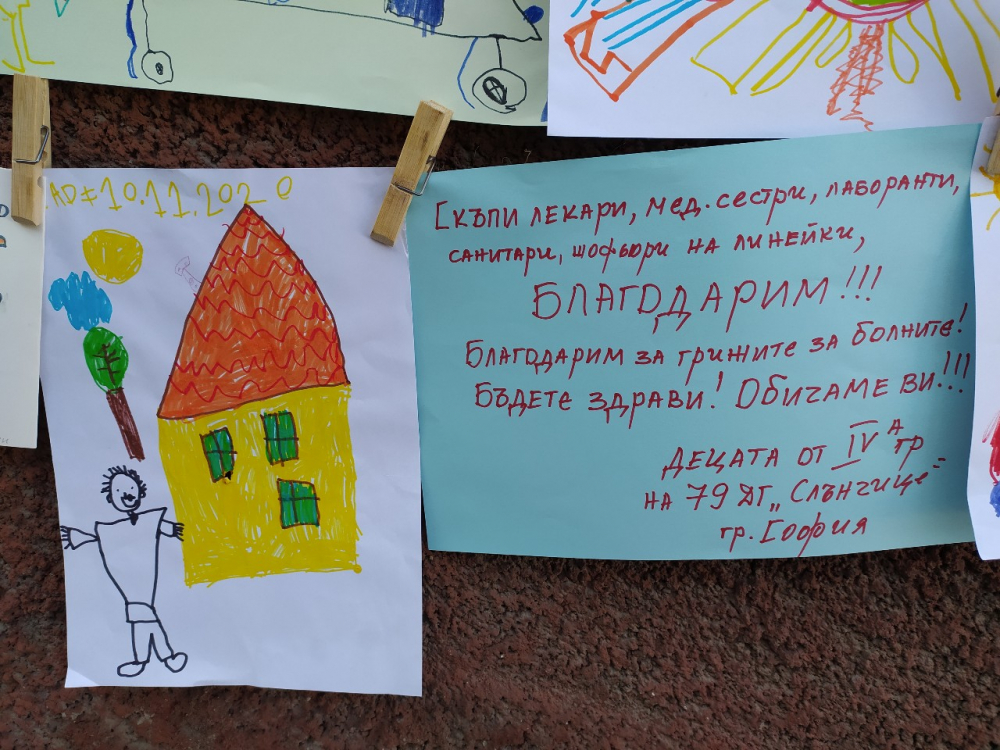 10.11.202
Скъпи лекари, мед. сестри, лаборанти,
санитари, шофьори на линейки,
БЛАГОДАРИМ!!!
Благодарим за грижите за болните!
Бъдете здрави! Обичаме ви!!!
Децата от IV А гр
на 79 ДГ „Слънчице"
гр. София